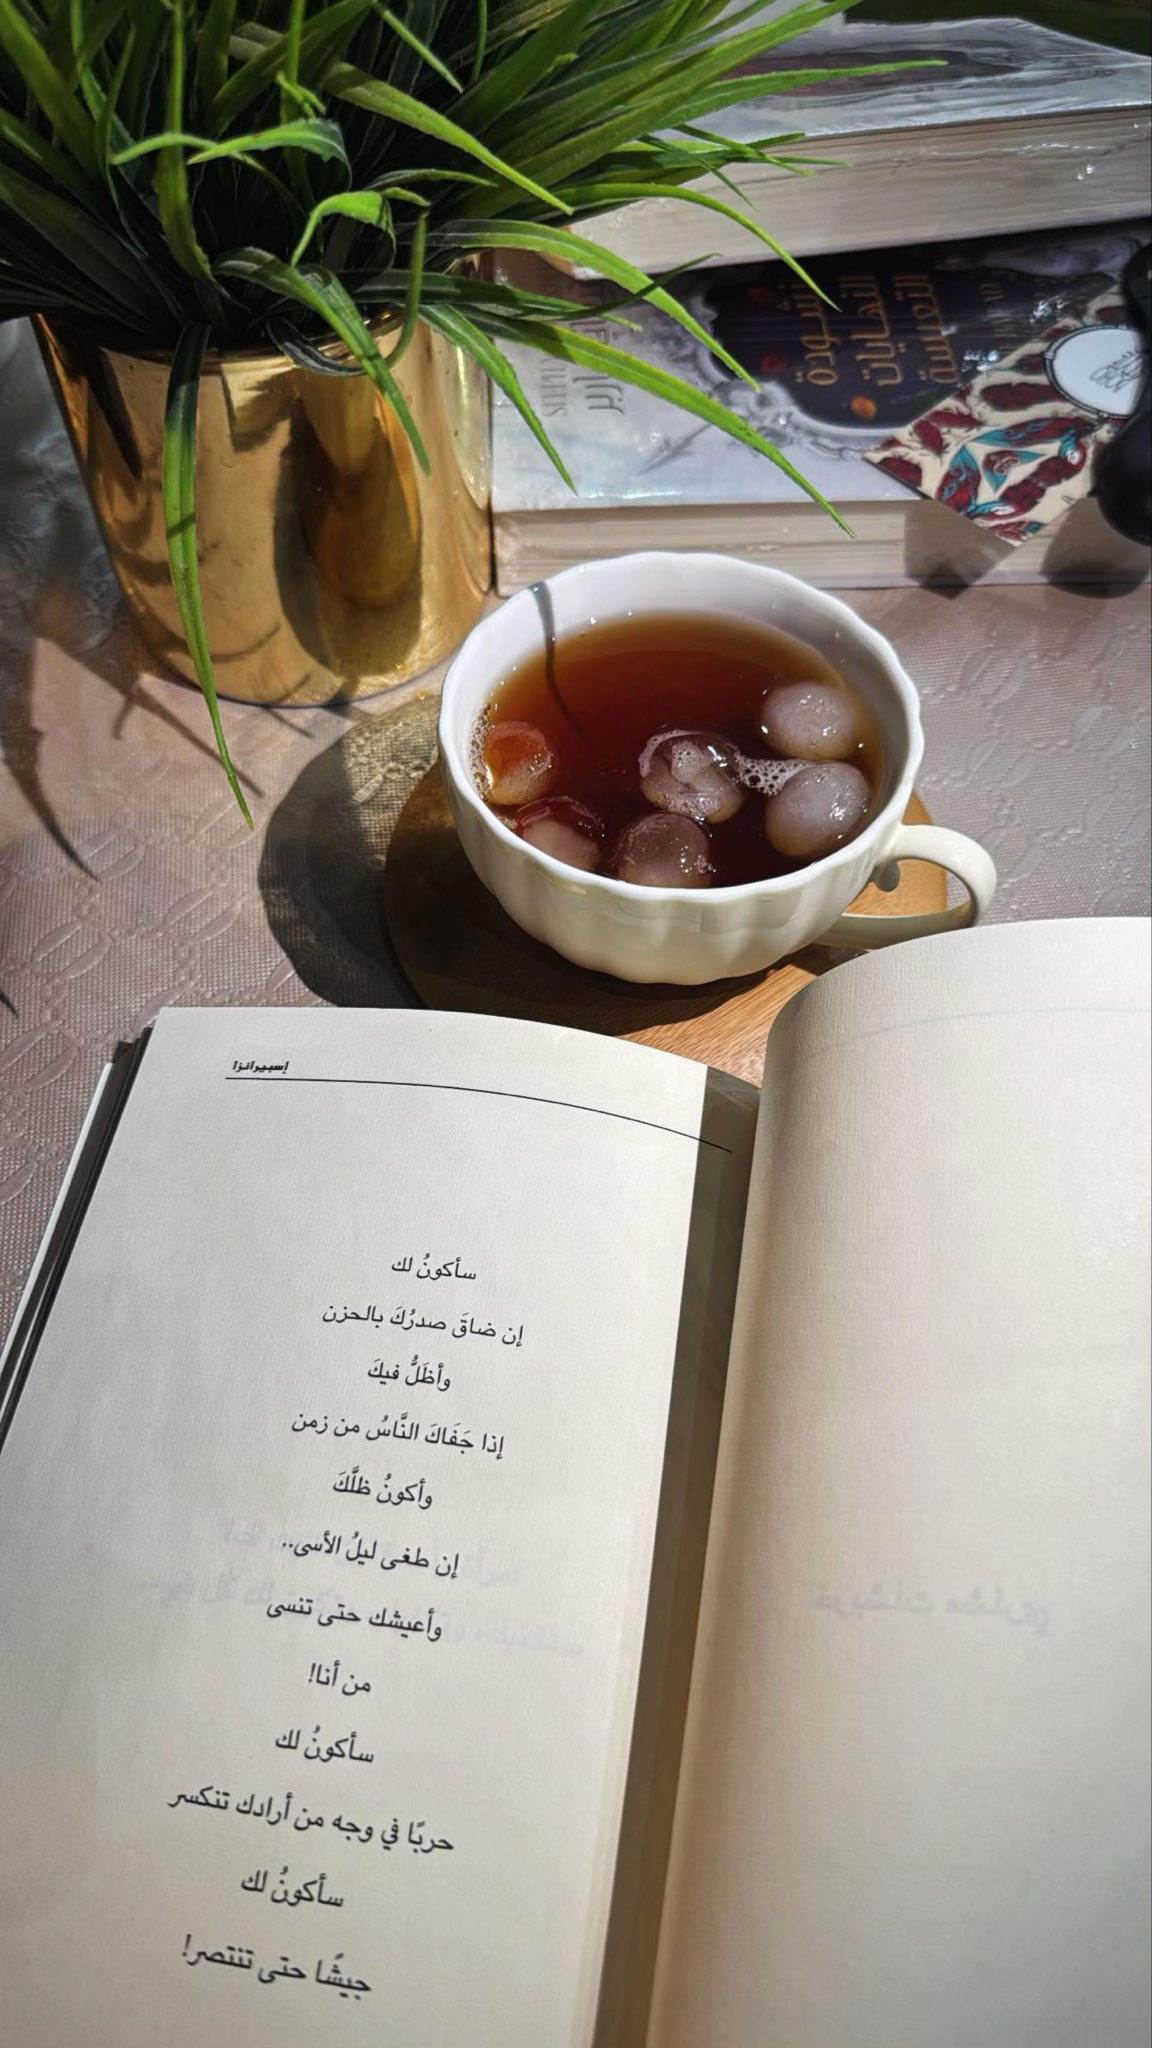 أنشودة
النهايات
التعيسة
إسبيرانزا
سأكونُ لك
إن ضاقَ صدرُكَ بالحزن
وأظَلُّ فيكَ
إذا جَفَاكَ النَّاسُ من زمن
وأكونُ ظلَّكَ
إن طغى ليلُ الأسى..
وأعيشك حتى تنسى
من أنا!
سأكونُ لك
حربًا في وجه من أرادك تنكسر
سأكونُ لك
جيشًا حتى تنتصر!